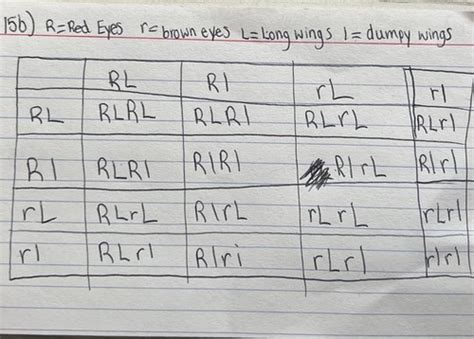 15b) R=Red Eyes r=brown eyes L=Long wings l=dumpy wings
RL Rl rL rl
RL RLRL RLRl RLrL RLrl
Rl RLRl RlRl RlrL Rlrl
rL RLrL RlrL rLrL rLrl
rl RLrl Rlri rLrl rlrl